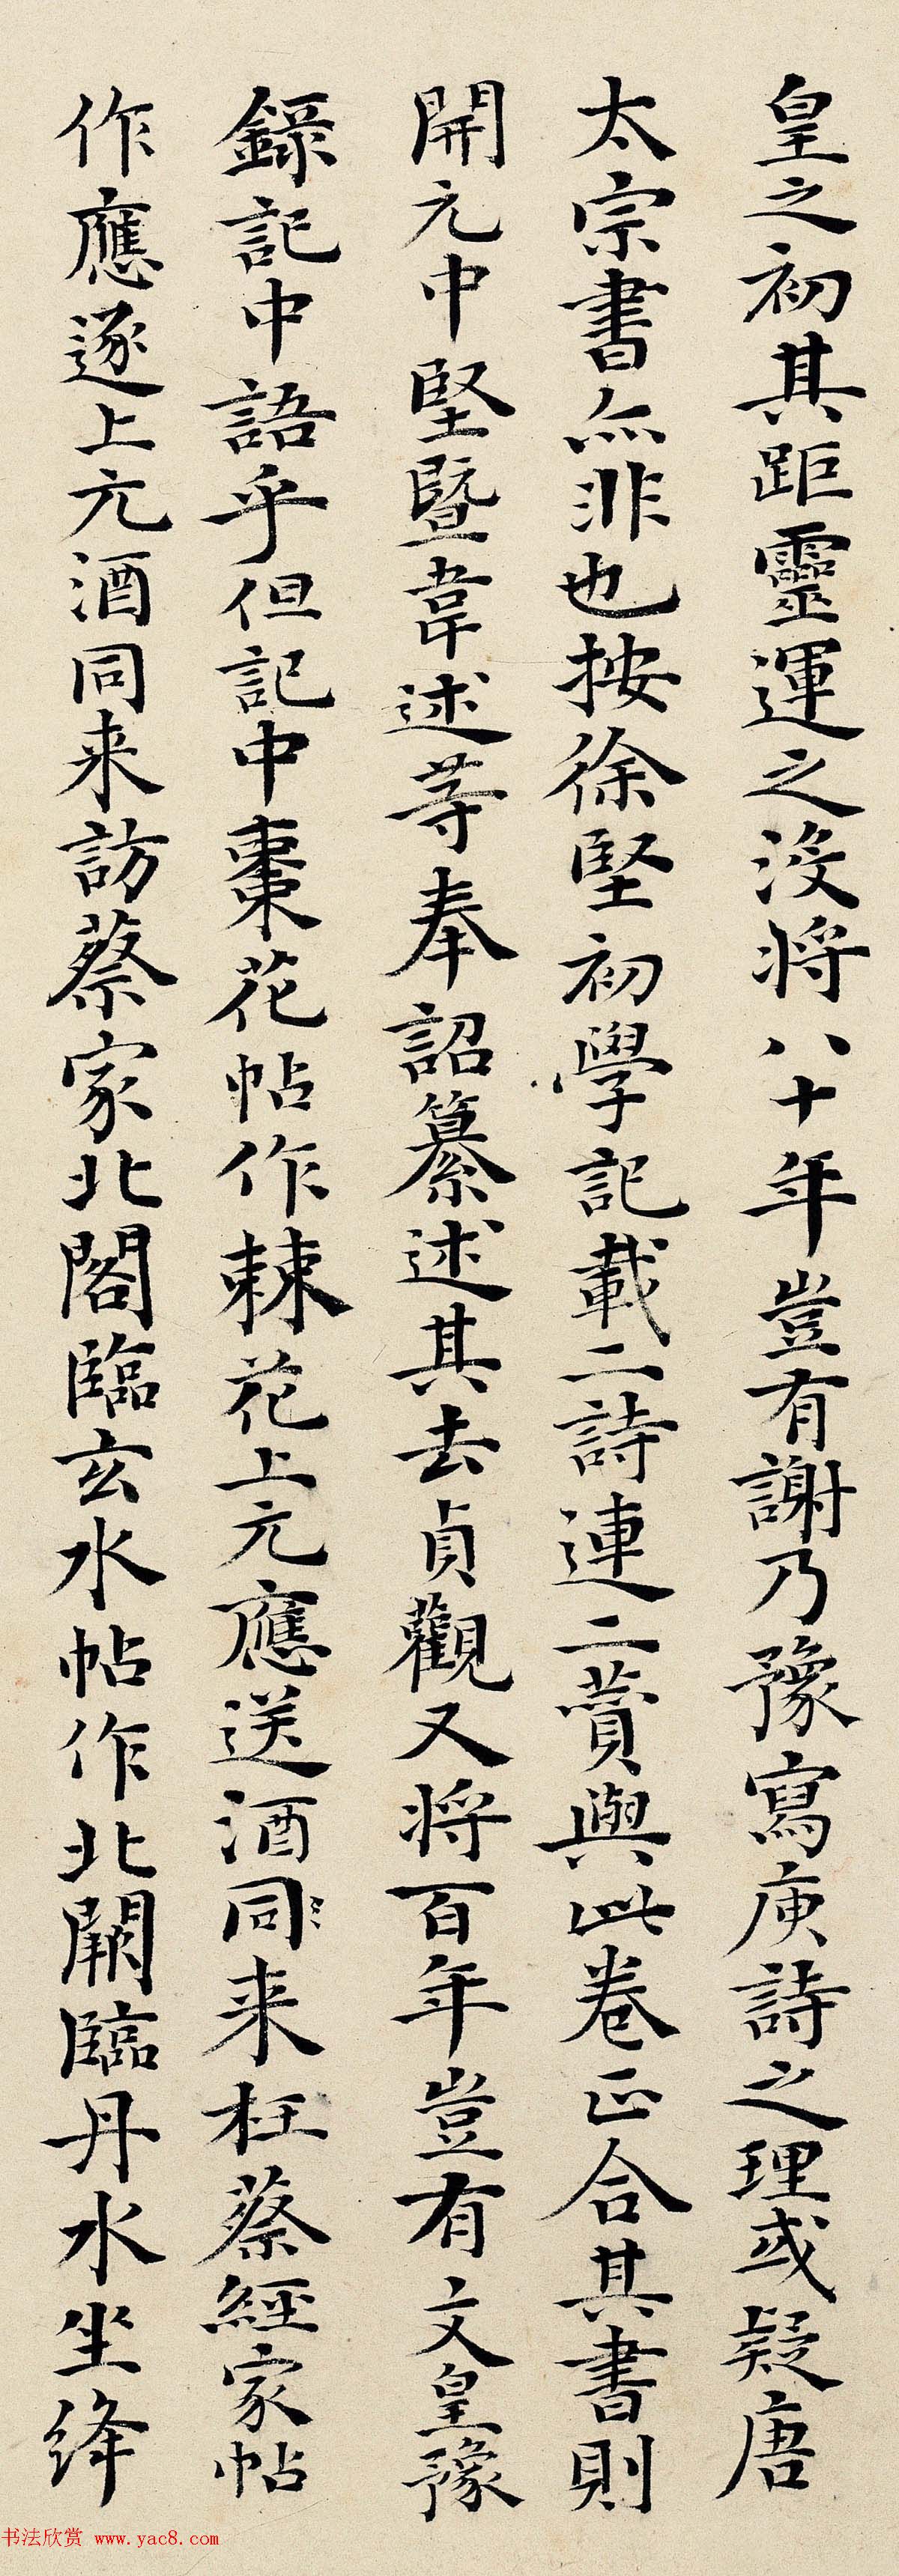 皇之初其距靈運之没将八十年豈有謝乃豫寫庾詩之理或疑唐
太宗書亦非也按徐堅初學記載二詩連二賛與此卷正合其書則
開元中堅暨韋述等奉詔纂述其去貞觀又将百年豈有文皇豫
録記中語乎但記中棗花帖作棘花上元應送酒同来枉蔡經家帖
作應逐上元酒同来訪蔡家北閣臨玄水帖作北闕臨丹水坐絳
书法欣赏 www.yac8.com